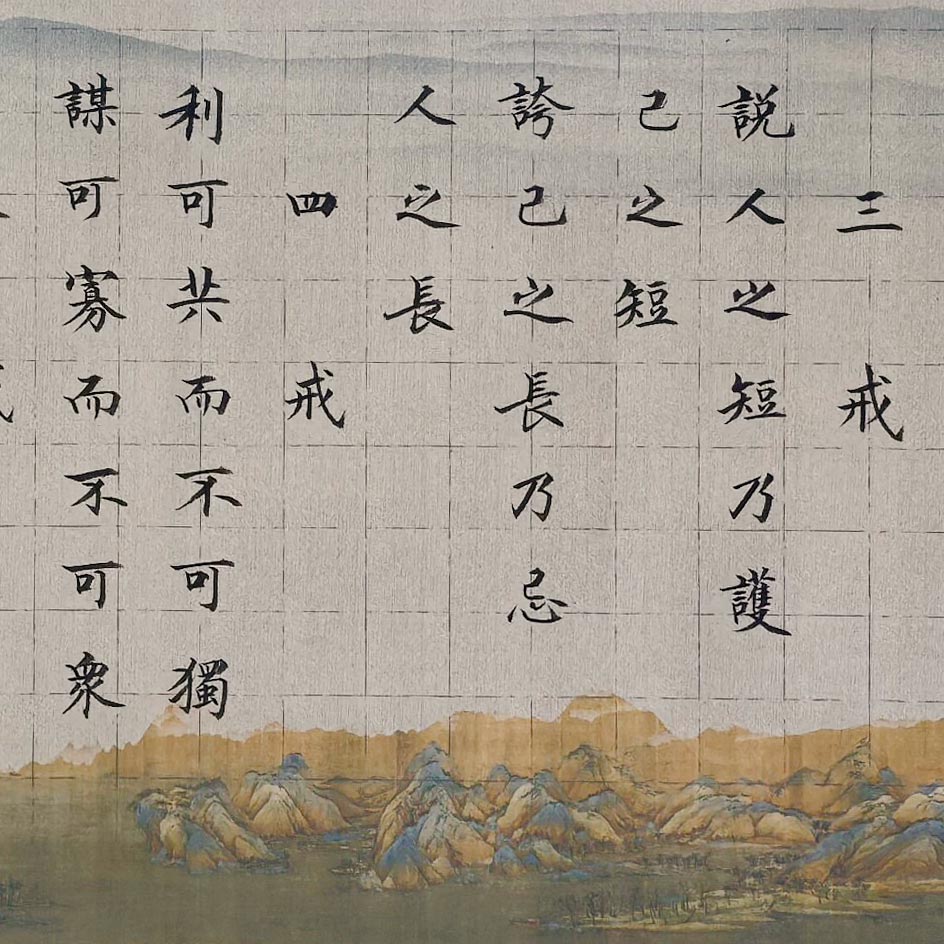 三戒
説人之短乃護
己之短
誇己之長乃忌
人之長
四戒
利可共而不可獨
謀可寡而不可衆